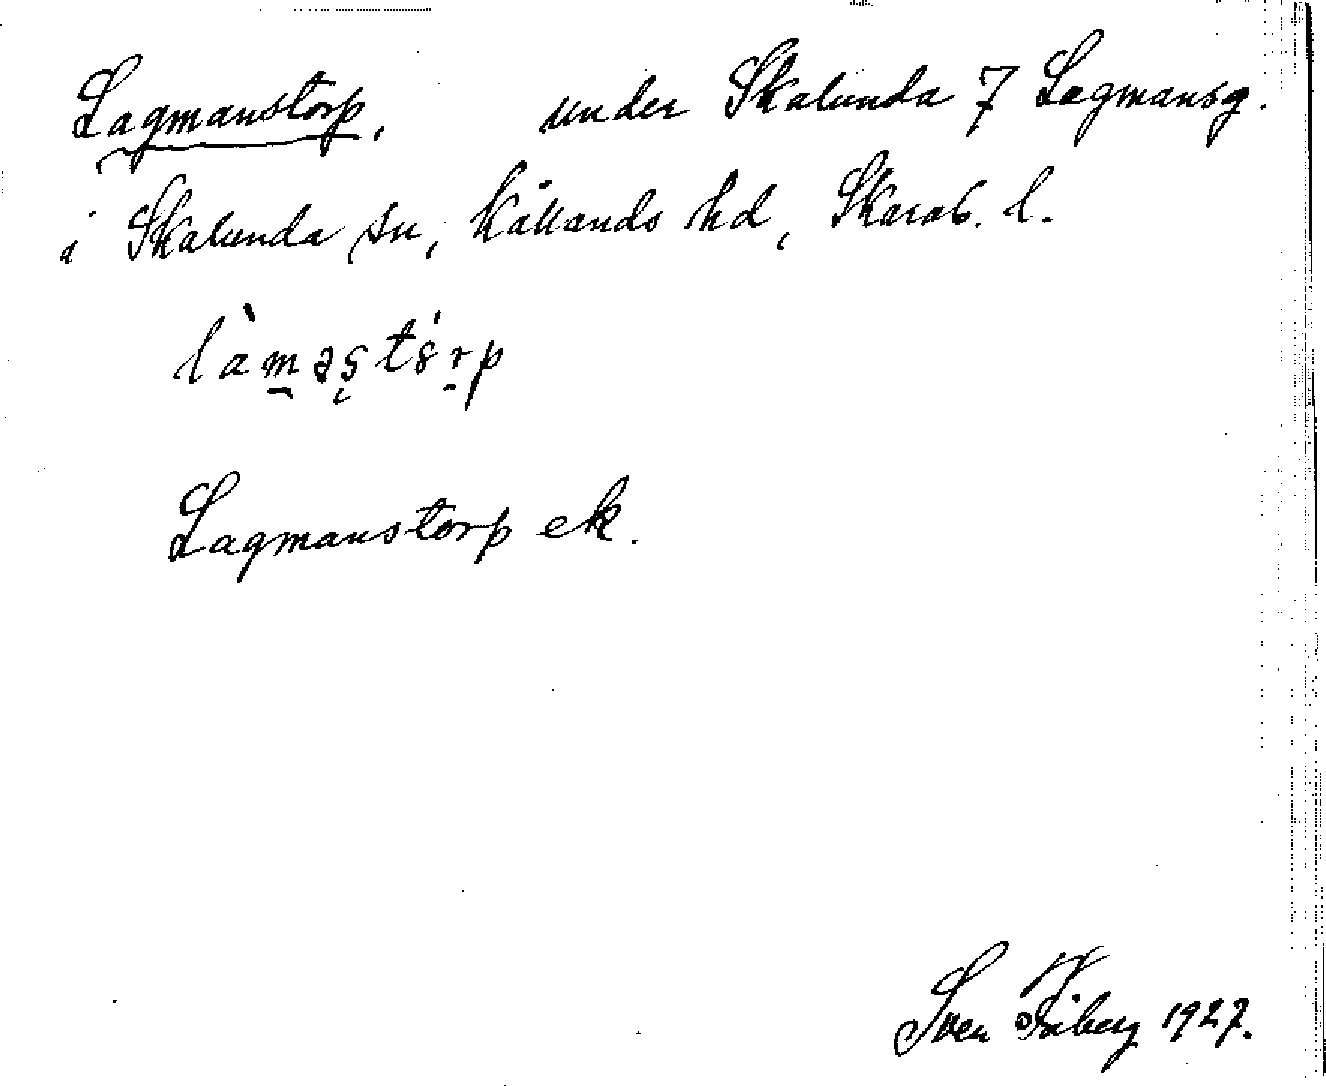 Lagmanstorp, under Skalunda 7 Lagmansg.
i Skalunda sn, Kållands hd, Skarab. l.
Lagmanstorp ek.
Sven 1927.